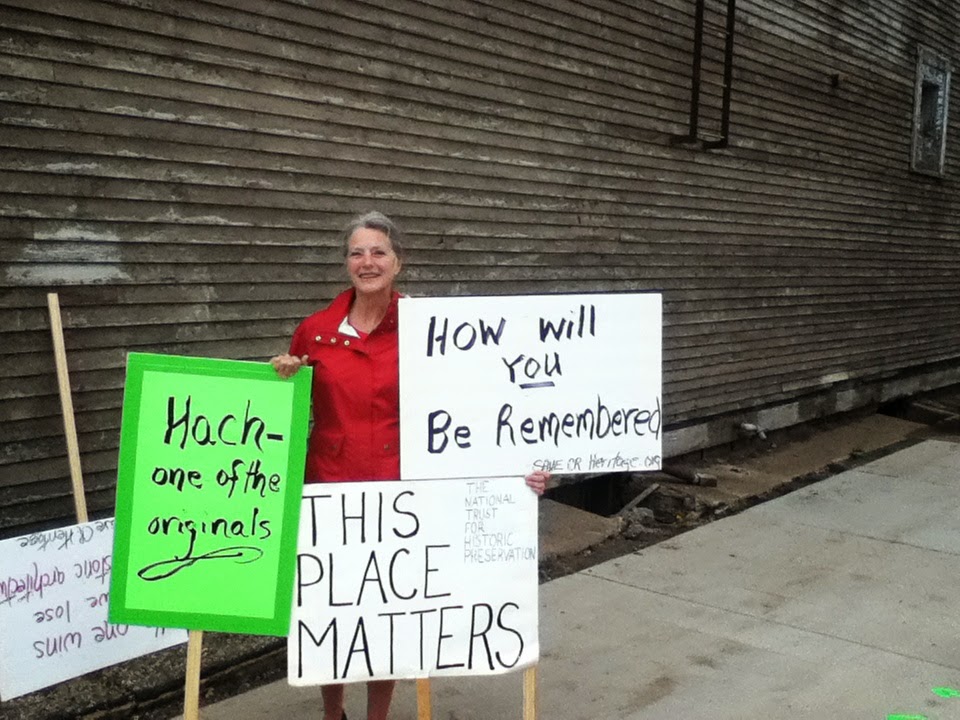 Hach-
one of the
originals
How will
you
Be Remembered
SAVE CR Heritage.org
THIS
PLACE
MATTERS
THE
NATIONAL
TRUST
FOR
HISTORIC
PRESERVATION
CR Heritage
we lose
one wins